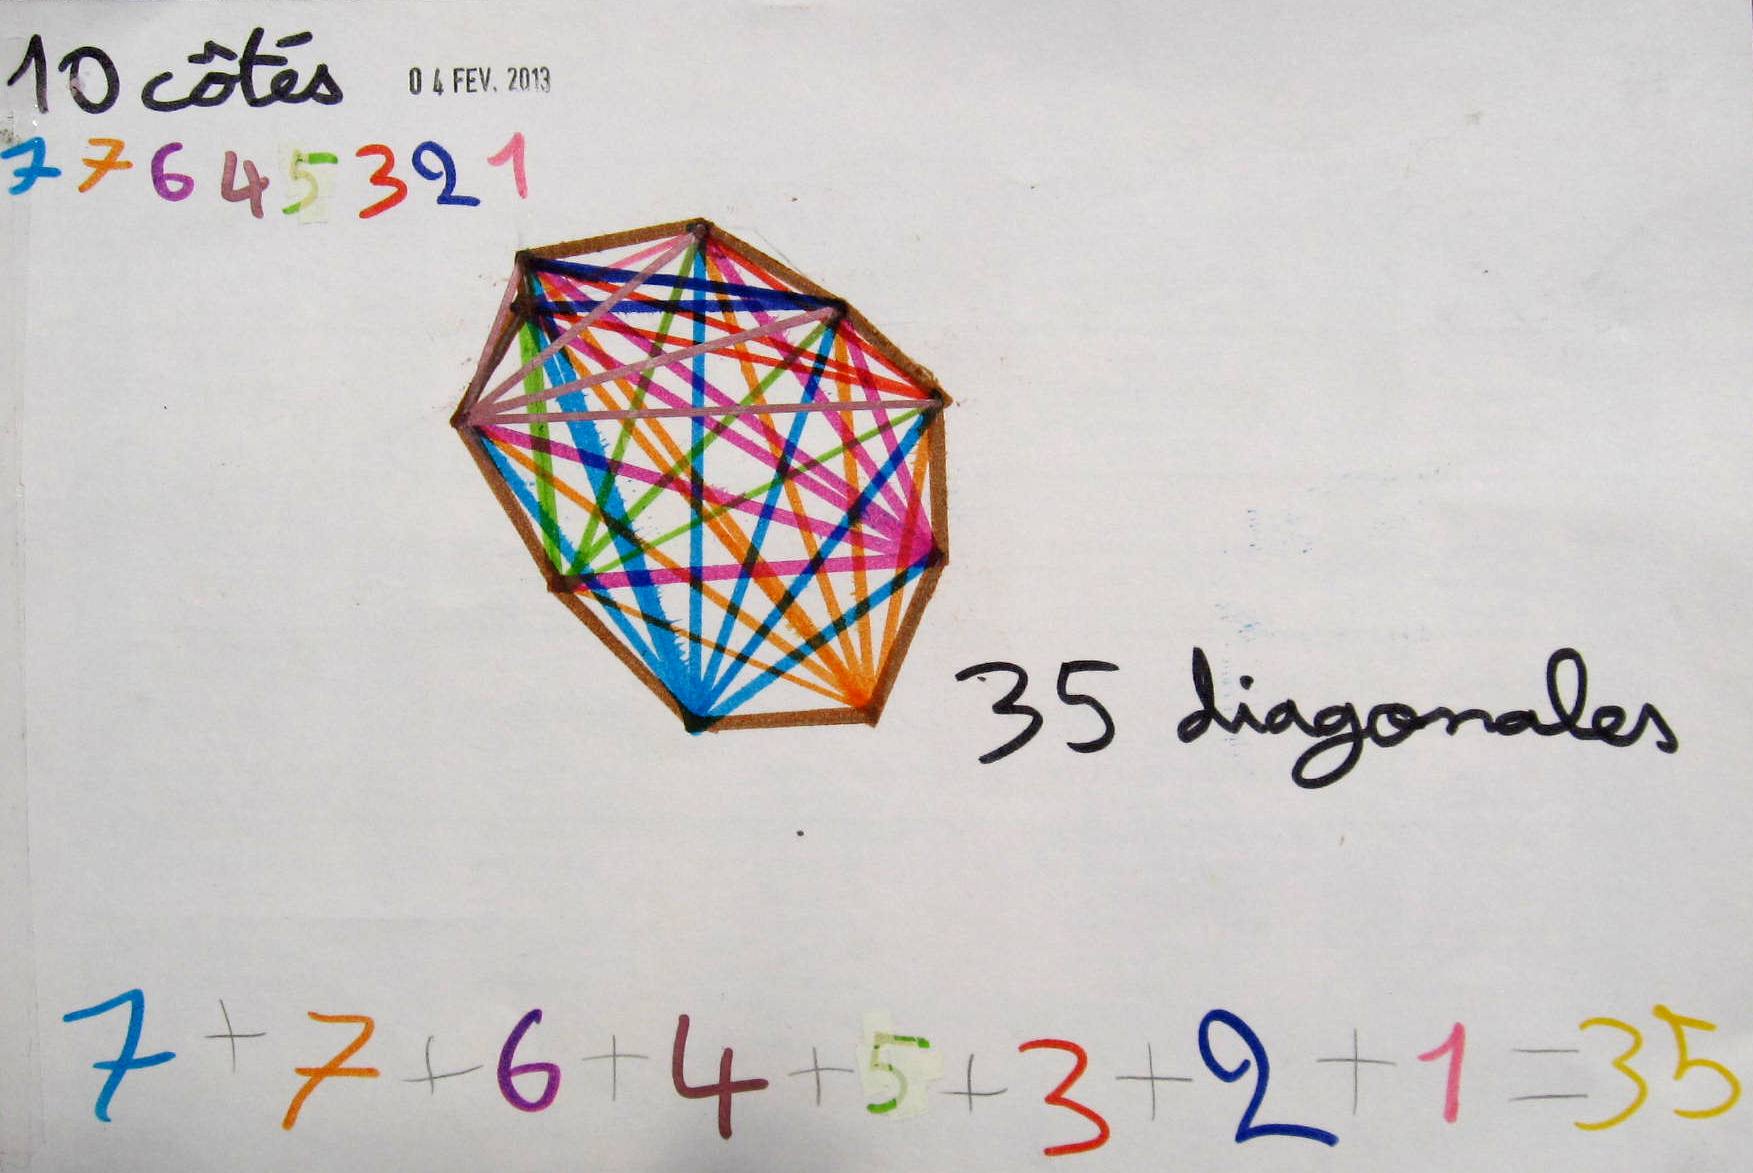 10 côtés 04 FEV. 2013
7 7 6 4 5 3 2 1
35 diagonales
7 + 7 + 6 + 4 + 5 + 3 + 2 + 1 = 35